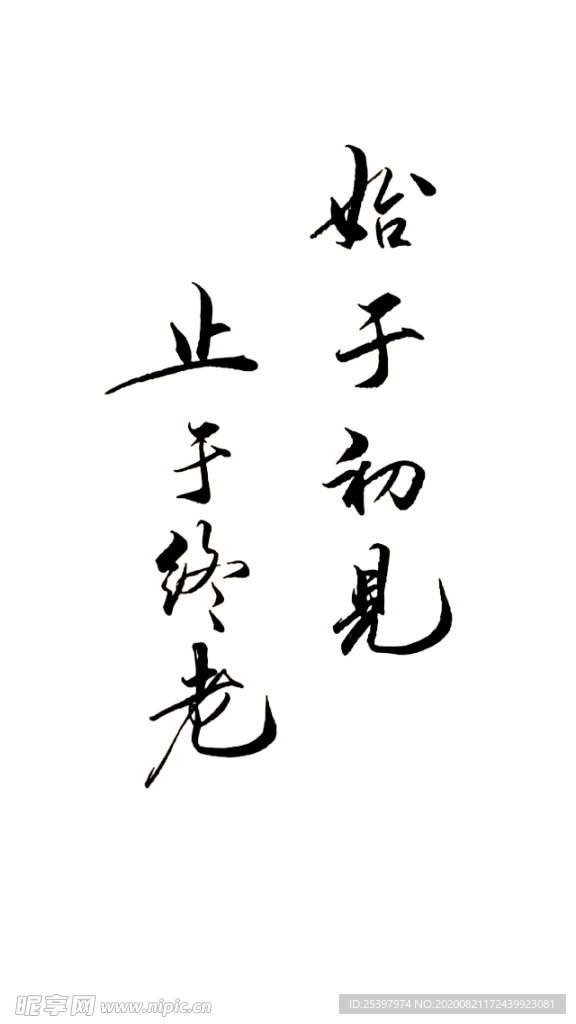 始于初見
止于终老
昵享网 www.nipic.cn
ID:25397974 NO:20200821172439923081